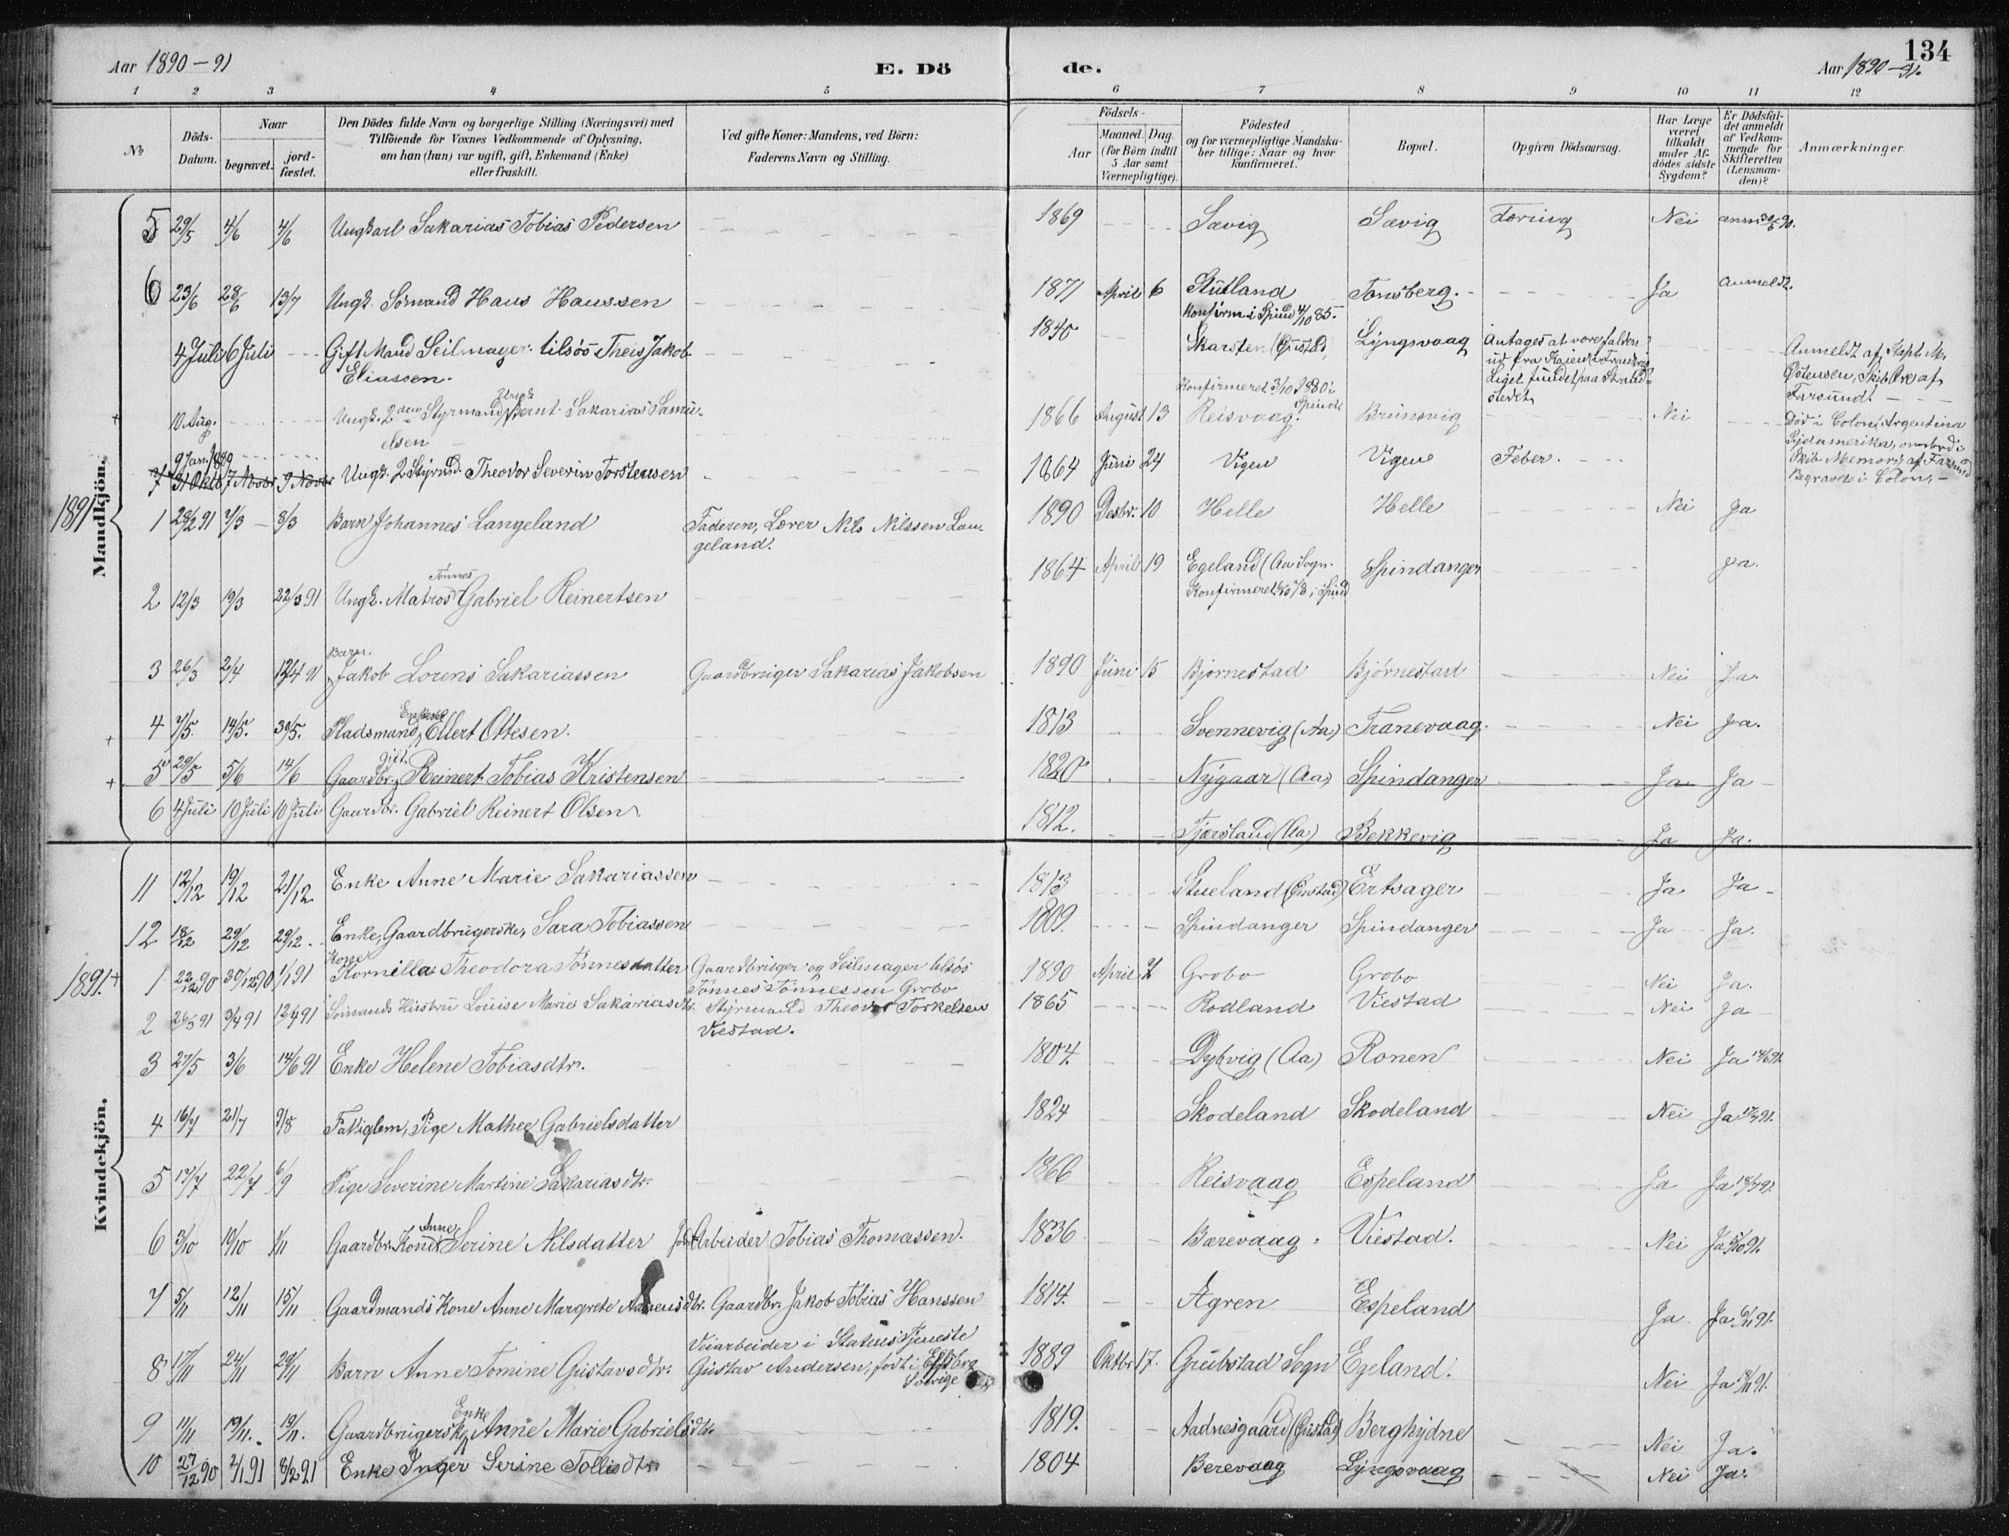 134
Aar 1890-91
E. Dö
de.
Aar 1890-91.
1 2 3 4 5 6 7 8 9 10 11 12
№
Döds-Datum.
Naar
begravet.
jordfæstet.
Den Dödes fulde Navn og borgerlige Stilling (Næringsvei) med
Tilföiende for Voxnes Vedkommende af Oplysning,
om han (hun) var ugift, gift, Enkemand (Enke)
eller fraskilt.
Ved gifte Koner: Mandens, ved Börn:
Faderens Navn og Stilling.
Födsels-
Aar
Maaned. Dag.
(for Börn indtil
5 Aar samt
Værnepligtige).
Födested
og for værnepligtige Mandskaber tillige: Naar og hvor
konfirmeret.
Bopæl.
Opgiven Dödsaarsag.
Har Læge
været
tilkaldt
under Afdödes sidste
Sygdom?
Er Dödsfaldet anmeldt
af Vedkommende for
Skifteretten
(Lensmanden)?
Anmærkninger.
Mandkjön.
5 29/5 4/6 4/6 Ungkarl Sakarias Tobias Pedersen 1869 Sævig Sævig Tæring Nei anm 30/5 90.
6 23/6 28/6 13/7 Ungk. Sömand Hans Hanssen 1871 April 6 Stutland Tonsberg. Ja anmeldt.
Konfirm. i Spind 4/10 85.
4 Juli 6 Juli Gift Mand Seilmager tilsös Theis Jakob 1845 Skarsten (Gustad) Lyngsvaag Antages at være falden
Eliassen. ud fra Kaien i
Liget fundet paa Strandstedet
Anmeldt af Kapt. M.
Östensen, Skib af
Farsund.
+ 10 Aug. Ungk. 2den Styrmand Bernt Sakarias Samuelsen 1866 August 13 Reisvaag. Brünsvig Nei
Konfirmeret 3/10 1880 i Spind
Död i Colon, Argentina
Sydamerika, ombord i
Skib Memory af Farsund
Begravet i Colon.
9 Jan. 1889
7 31 Okt. 7 Novbr 9 Novbr Ungk. 2 Styrmd. Theodor Severin Torstensen 1864 Juni 24 Vigen Vigen Feber.
1891
1 28/2 91 7/3 8/3 Barn Johannes Langeland Faderen, Lærer Nils Nilssen Langeland. 1890 Desbr. 10 Helle Helle Nei Ja
2 12/3 19/3 22/3 91 Ungk. Matros Tönnes Gabriel Reinertsen 1864 April 19 Egeland (Aa Sogn. Spindanger Ja.
Konfirmeret i Spind
3 26/3 2/4 12/4 91 Barn. Jakob Lorens Sakariassen Gaardbruger Sakarias Jakobsen 1890 Juni 15 Bjornestad Björnestad Nei Ja.
+ 4 7/5. 14/5. 30/5. Pladsmand, Enkem. Ellert Ottesen. 1813 Svennevig (Aa) Tranevaag. Nei Ja.
+ 5 29/5 5/6 14/6 Gaardbr. gift. Reinert Tobias Kristensen 1820 Nygaar (Aa) Spindanger Ja Ja
6 4 Juli 10 Juli 10 Juli Gaardbr. Gabriel Reinert Olsen 1812. Tjærsland (Aa) Bekkevig Ja Ja.
Kvindekjön.
11 12/12 19/12 21/12 Enke Anne Marie Sakariassen 1813 Stueland (Gustad) Ertsager Ja Ja
12 18/12 29/12 29/12. Enke, Gaardbrugerske, Sara Tobiassen 1809. Spindanger Spindanger Ja Ja.
1891.+
1 22/12 90 30/12 90 1/1 91 Kornilla Theodora Tönnesdatter Gaardbruger og Seilmager tilsös 1890 April 7 Grobo Grobo Nei Ja.
Tönnes Tönnessen Grobo
2 26/3 91 3/4 91 12/4 91 Sömands Hustru Louise Marie Sakariasdtr. Styrmand Theodor Torkelsen 1865 Rodland Viestad Nei Ja
Viestad.
3 27/5 3/6 14/6 91 Enke Helene Tobiasdtr. 1804. Dybvig (Aa) Ronen Nei Ja 14/6 91.
4 16/7 21/7 9/8 Fattiglem, Pige Mathee Gabrielsdatter 1824 Skodeland Skodeland Nei Ja 17/7 91.
5 17/7 22/7 6/9 Pige Severine Martine Sakariasdtr. 1866 Reisvaag Espeland Ja Ja 18/7 91.
6 3/10 10/10 1/11 Gaardbr. Kone Anne Serine Nilsdatter Arbeider Tobias Thomassen. 1836 Barevaag Viestad. Nei Ja 5/10 91.
7 5/11 12/11 15/11 Gaardmands Kone Anne Margrete dtr. Gaardbr. Jakob Tobias Hanssen 1814. Agren Espeland Ja Ja 6/11 91.
8 17/11 24/11 29/11 Barn Anne Tomine Gustavsdtr. Veiarbeider i Statens Tjeneste 1889 Oktbr. 17. Grubstad Sogn Egeland. Nei Ja 18/11 91.
Gustav Andersen, född i
Sverige
9 11/11 19/11. 19/11. Gaardbrugerske Enke Anne Marie Gabrielsdtr. 1819. Aadnesgaard (Gustad) Berghydne Nei Ja.
10 27/12 90 2/1 91 8/2 91 Enke Inger Serine Tollisdtr. 1804 Berevaag Lyngsvaag Nei Ja.